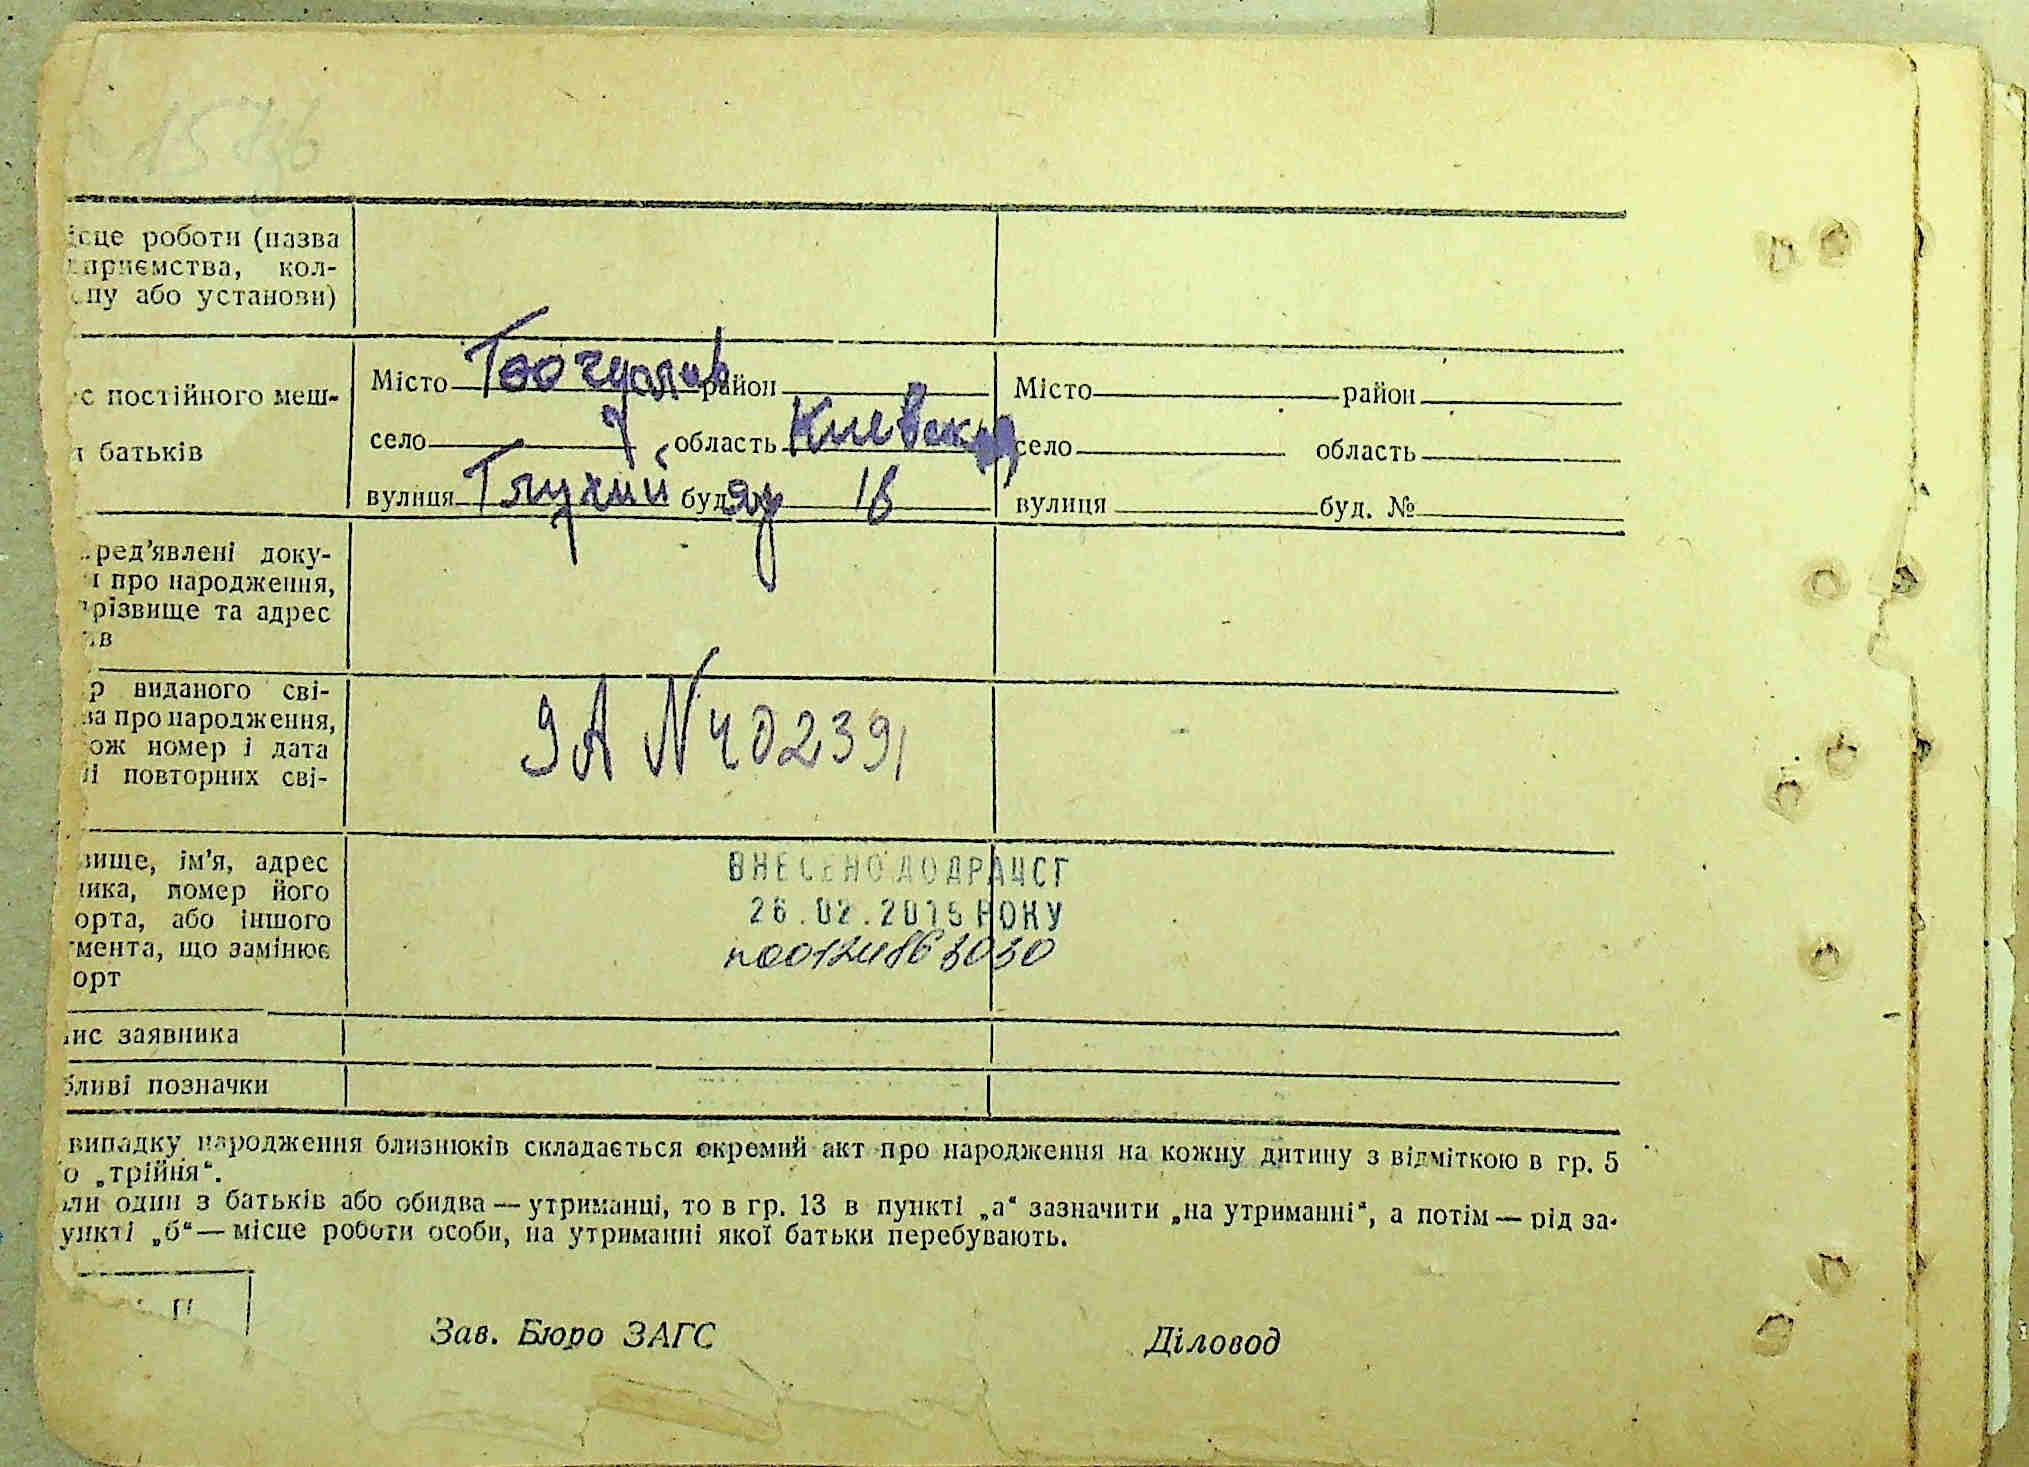 ісце роботи (назва
приємства, кол-
пу або установи)
с постійного меш-
батьків
Місто район
село область Киевская
вулиця Глухий буд. яр 18
Місто район
село область
вулиця буд. №
ред'явлені доку-
про народження,
різвище та адрес
ів
р виданого сві-
ва про народження,
ож номер і дата
і повторних сві-
ЯА № 402391
вище, ім'я, адрес
ника, номер його
орта, або іншого
мента, що замінює
орт
ВНЕСЕНО ДО ДРАЦСГ
26.02.2015 РОКУ
ис заявника
бливі позначки
випадку народження близнюків складається окремий акт про народження на кожну дитину з відміткою в гр. 5
о „трійня“.
ли один з батьків або обидва — утриманці, то в гр. 13 в пункті „а“ зазначити „на утриманні“, а потім — рід за-
ункті „б“ — місце роботи особи, на утриманні якої батьки перебувають.
Зав. Бюро ЗАГС
Діловод